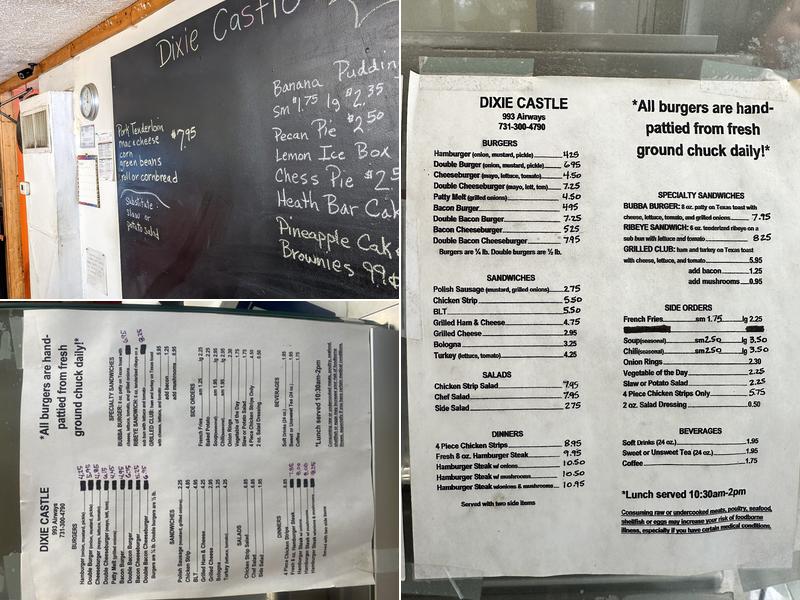 Dixie Castle
Pork Tenderloin
mac & cheese
corn
green beans
roll or cornbread
$7.95
Substitute
slaw or
potato salad
Banana Puddin
sm $1.75 lg $2.35
Pecan Pie $2.50
Lemon Ice Box
Chess Pie $2.5
Heath Bar Cak
Pineapple Cak
Brownies 99¢
*All burgers are hand-
pattied from fresh
ground chuck daily!*
DIXIE CASTLE
993 Airways
731-300-4790
BURGERS
SANDWICHES
SALADS
DINNERS
SPECIALTY SANDWICHES
SIDE ORDERS
BEVERAGES
*Lunch served 10:30am-2pm
DIXIE CASTLE
993 Airways
731-300-4790
BURGERS
Hamburger (onion, mustard, pickle) 4.25
Double Burger (onion, mustard, pickle) 6.95
Cheeseburger (mayo, lettuce, tomato) 4.50
Double Cheeseburger (mayo, lett, tom) 7.25
Patty Melt (grilled onions) 4.50
Bacon Burger 4.95
Double Bacon Burger 7.25
Bacon Cheeseburger 5.25
Double Bacon Cheeseburger 7.95
Burgers are ¼ lb. Double burgers are ½ lb.
SANDWICHES
Polish Sausage (mustard, grilled onions) 2.75
Chicken Strip 5.50
BLT 5.50
Grilled Ham & Cheese 4.75
Grilled Cheese 2.95
Bologna 3.25
Turkey (lettuce, tomato) 4.25
SALADS
Chicken Strip Salad 7.95
Chef Salad 7.95
Side Salad 2.75
DINNERS
4 Piece Chicken Strips 8.95
Fresh 8 oz. Hamburger Steak 9.95
Hamburger Steak w/ onions 10.50
Hamburger Steak w/ mushrooms 10.50
Hamburger Steak w/onions & mushrooms 10.95
Served with two side items
*All burgers are hand-
pattied from fresh
ground chuck daily!*
SPECIALTY SANDWICHES
BUBBA BURGER: 8 oz. patty on Texas toast with
cheese, lettuce, tomato, and grilled onions. 7.95
RIBEYE SANDWICH: 6 oz. tenderized ribeye on a
sub bun with lettuce and tomato 8.25
GRILLED CLUB: ham and turkey on Texas toast
with cheese, lettuce, and tomato 5.95
add bacon 1.25
add mushrooms 0.95
SIDE ORDERS
French Fries sm 1.75 lg 2.25
Soup (seasonal) sm 2.50 lg 3.50
Chili (seasonal) sm 2.50 lg 3.50
Onion Rings 2.30
Vegetable of the Day 2.25
Slaw or Potato Salad 2.25
4 Piece Chicken Strips Only 5.75
2 oz. Salad Dressing 0.50
BEVERAGES
Soft Drinks (24 oz.) 1.95
Sweet or Unsweet Tea (24 oz.) 1.95
Coffee 1.75
*Lunch served 10:30am-2pm
Consuming raw or undercooked meats, poultry, seafood,
shellfish or eggs may increase your risk of foodborne
illness, especially if you have certain medical conditions.